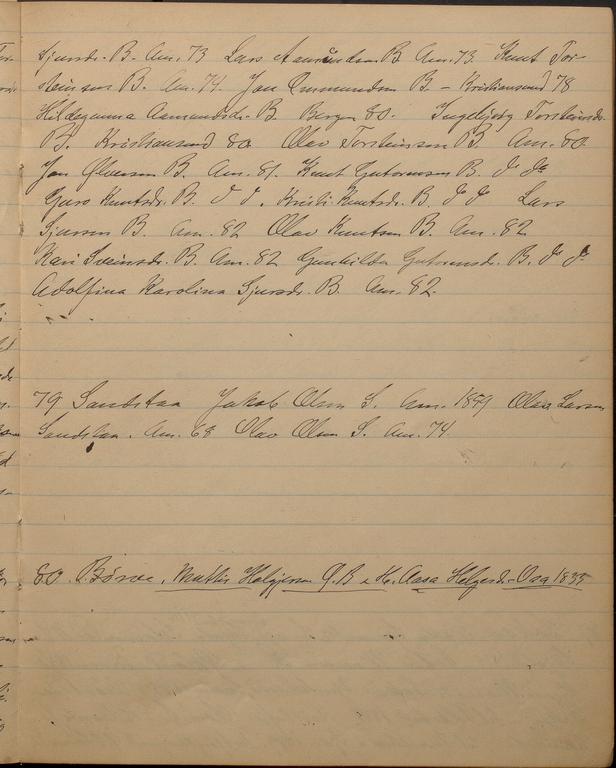 Sjursdr. B. Am. 73 Lars Aamundsen B Am. 73. Knut Tor-
steinson B. Am. 74. Jon Ommundsen B. – Kristiansund 78
Hildegunna Aamundsdr. B. Bergen 80. Ingebjörg Torsteinsdr.
B. Kristiansund 80 Olav Torsteinson B. Am. 80
Jon B. Am. 81. Knut Gutormson B. do do
Guro Knutsdr. B. do do. Kristi Knutsdr. B. do do Lars
Sjurson B. Am. 82 Olav Knutson B. Am. 82
Kari Sveinsdr. B. Am. 82 Gunhilda Gutormsdr. B. do do
Adolfina Karolina Sjursdr. B. Am. 82.
79 Sandstaa Jakob Olson S. Am. 1859 Olav Larson
Sandstaa. Am. 68 Olav Olson S. Am. 74.
80. Börve, Mattis Helgjeson B. H. Aasa Helgesdr. 1835